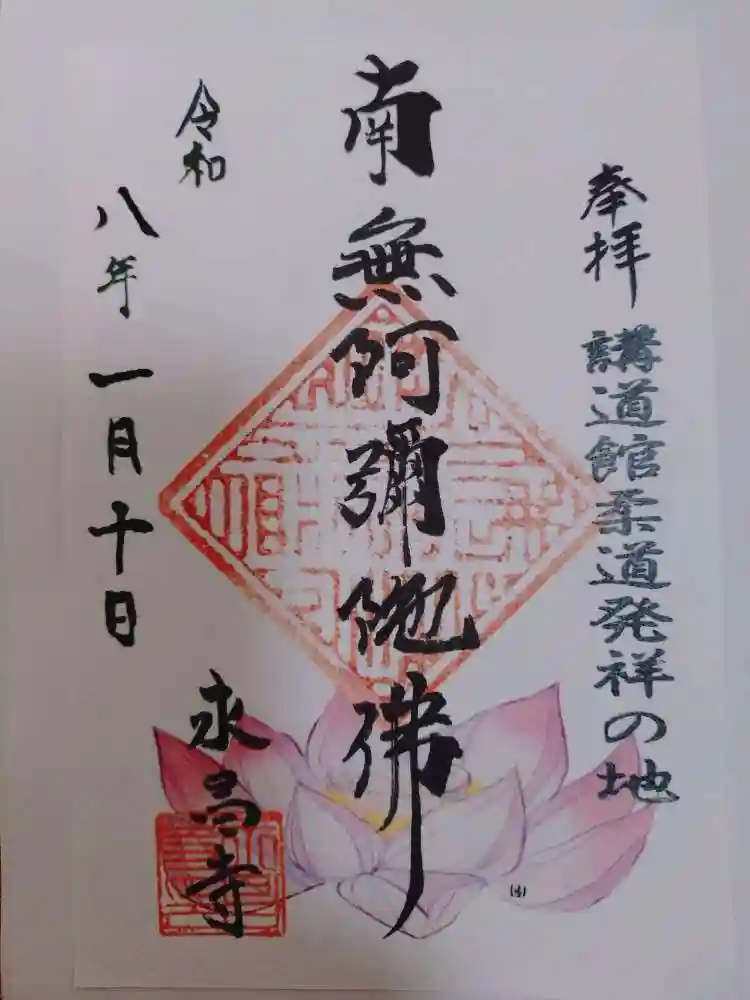 奉拝 講道館柔道発祥の地
南無阿彌陀佛
令和八年一月十日
永昌寺